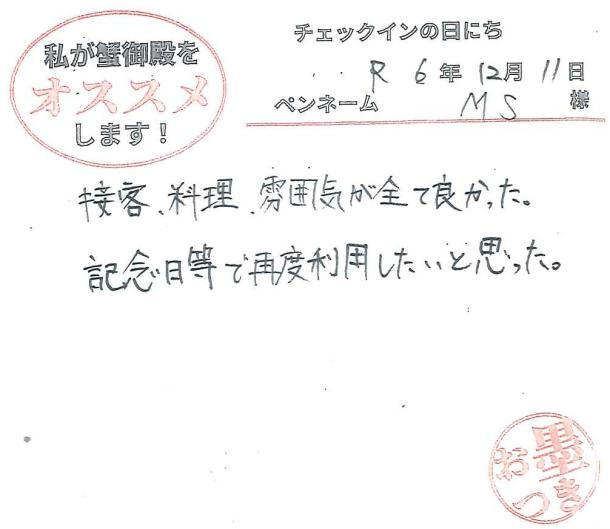 私が蟹御殿を
オススメ
します！
チェックインの日にち
R 6年 12月 11日
ペンネーム MS 様
接客、料理、雰囲気が全て良かった。
記念日等で再度利用したいと思った。
お墨つき